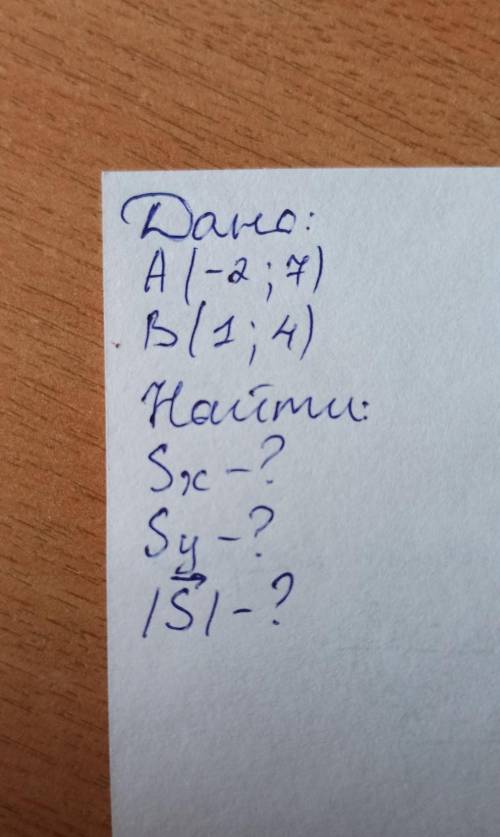 Дано:
A(-2;7)
B(1;4)
Найти:
Sx-?
Sy-?
|S⃗|-?